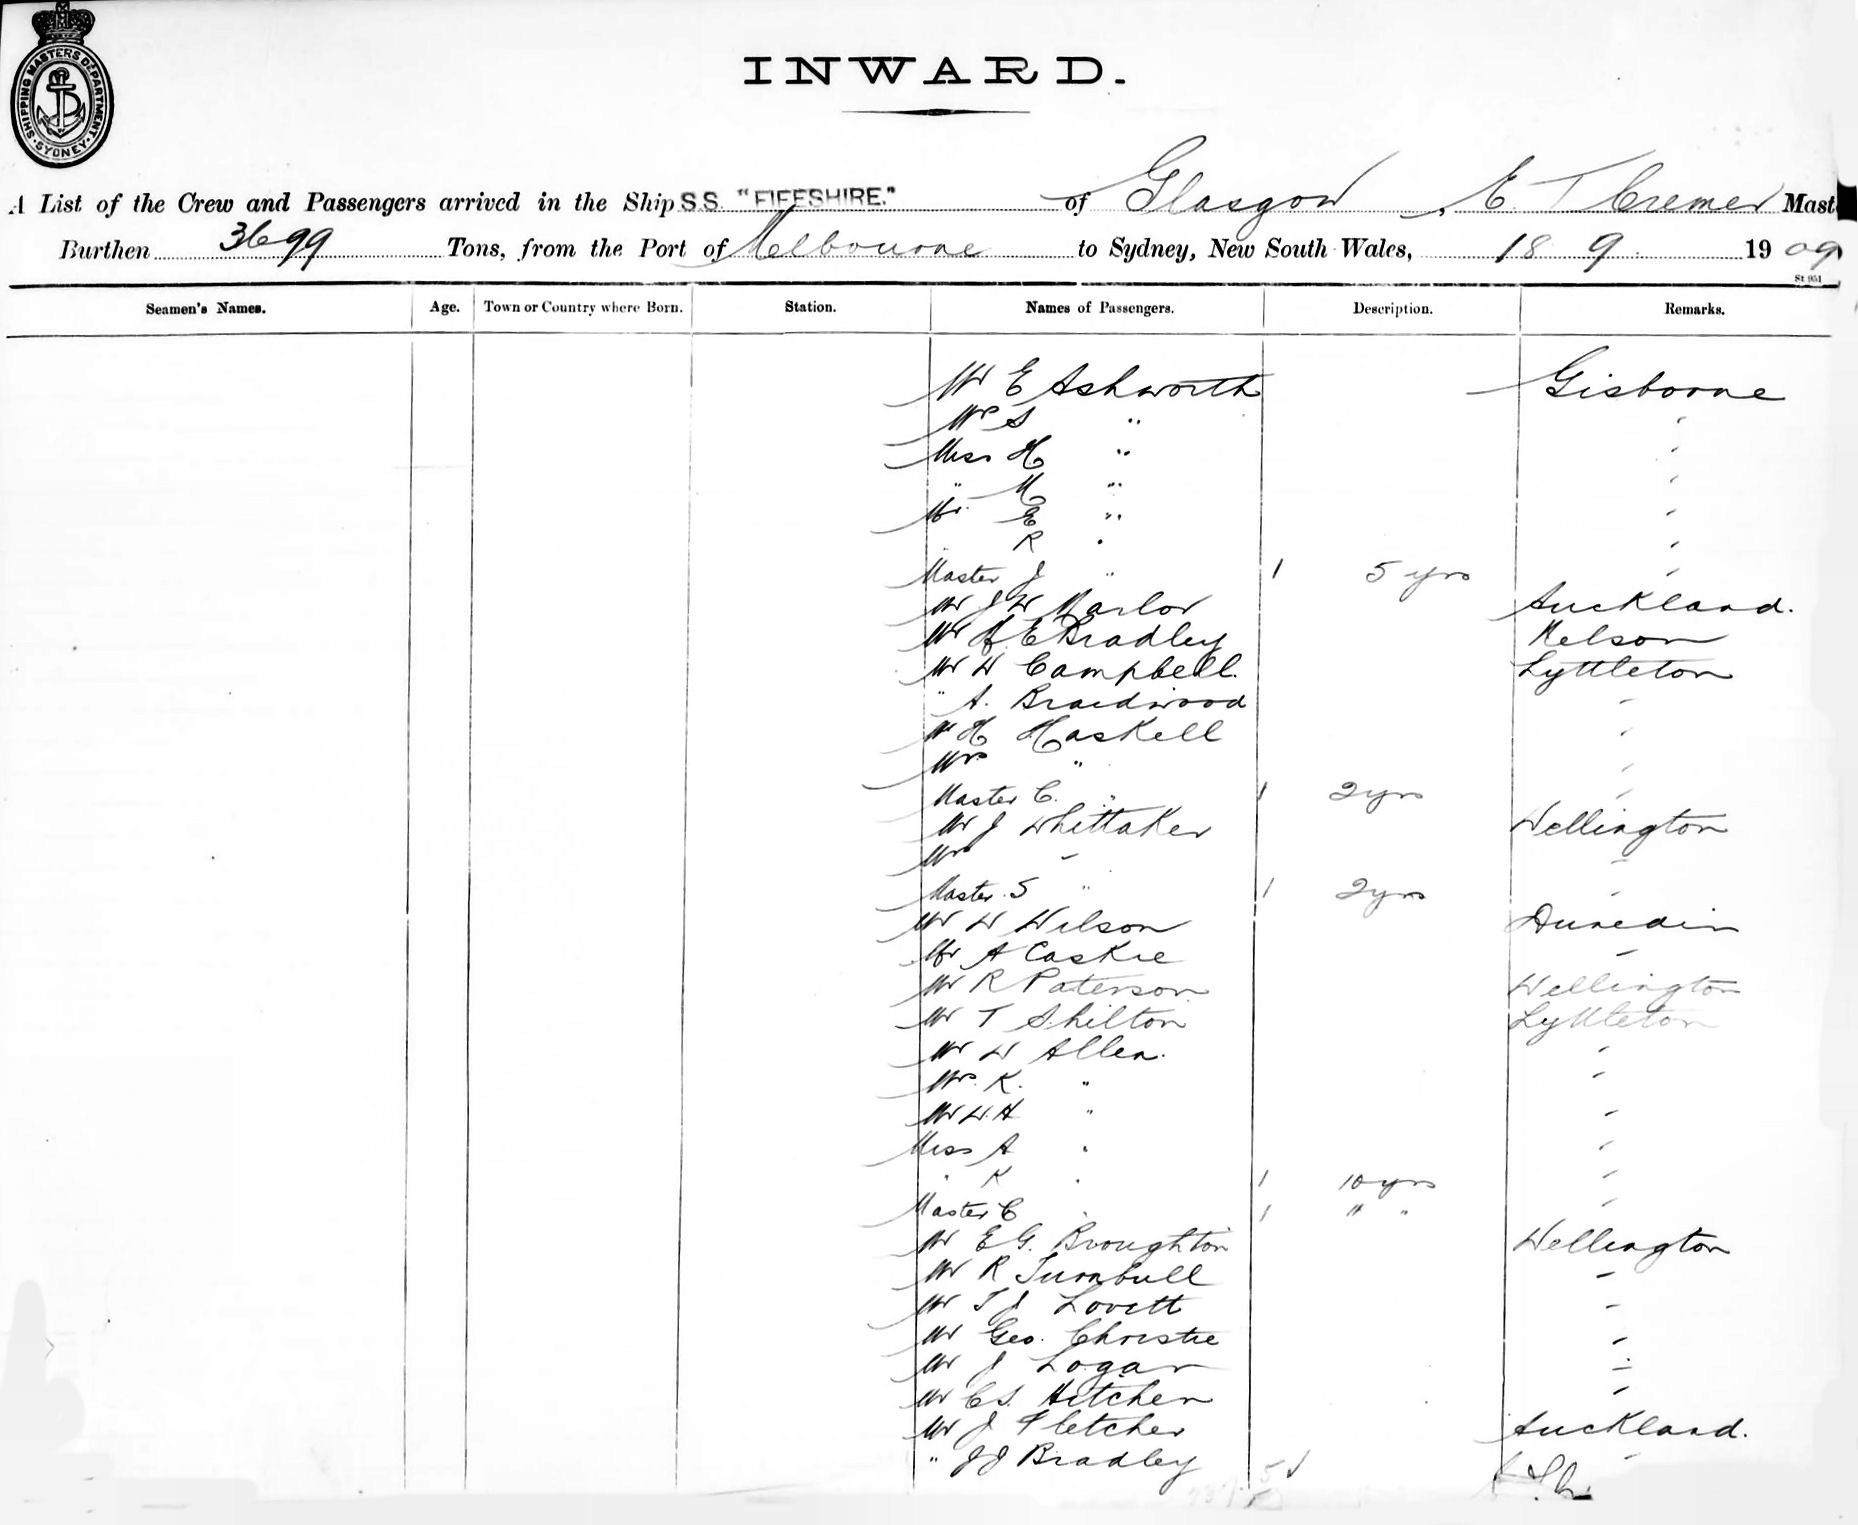 SHIPPING MASTERS DEPARTMENT
SYDNEY
INWARD.
A List of the Crew and Passengers arrived in the Ship S.S. "FIFESHIRE." of Glasgow, E. T Cremer Mast
Burthen 3699 Tons, from the Port of Melbourne to Sydney, New South Wales, 18 9 1909
St 951
Seamen's Names. Age. Town or Country where Born. Station. Names of Passengers. Description. Remarks.
Mr E Ashworth Gisborne
Mrs S " "
Miss H " "
" M " "
Mr E " "
" R " "
Master J " 1 5 yrs "
Mr J W Marlor Auckland.
Mr H E Bradley Nelson
Mr W Campbell. Lyttleton
" A. Braidwood "
Mr H Haskell "
Mrs " "
Master C. " 1 2 yrs "
Mr J Whittaker Wellington
Mrs " "
Master S " 1 2 yrs "
Mr W Wilson Dunedin
Mr A Caskie "
Mr R Paterson Wellington
Mr T Shilton Lyttleton
Mr W Allen. "
Mrs K. " "
Mr W.H " "
Miss A " "
" K " 1 10 yrs "
Master C " 1 " " "
Mr E G. Broughton Wellington
Mr R Turnbull "
Mr T J Lovett "
Mr Geo. Christie "
Mr J Logan "
Mr C S. Hitchen "
Mr J Fletcher Auckland.
" J J Bradley "
5